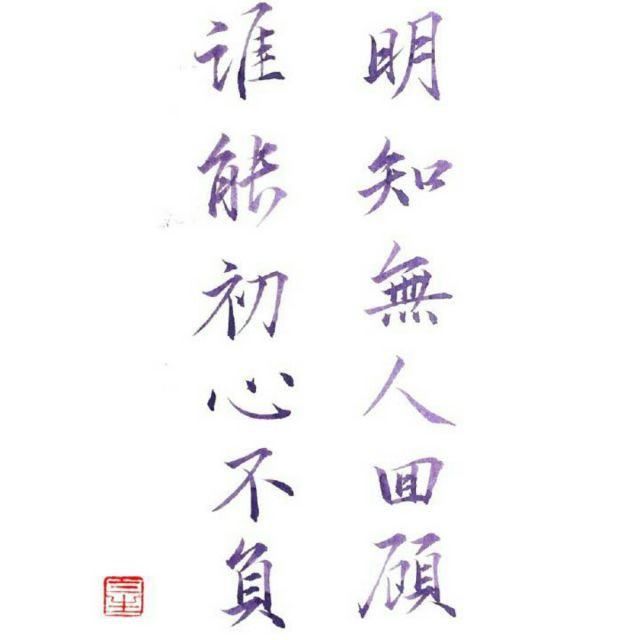 明知無人囬顧
谁能初心不負